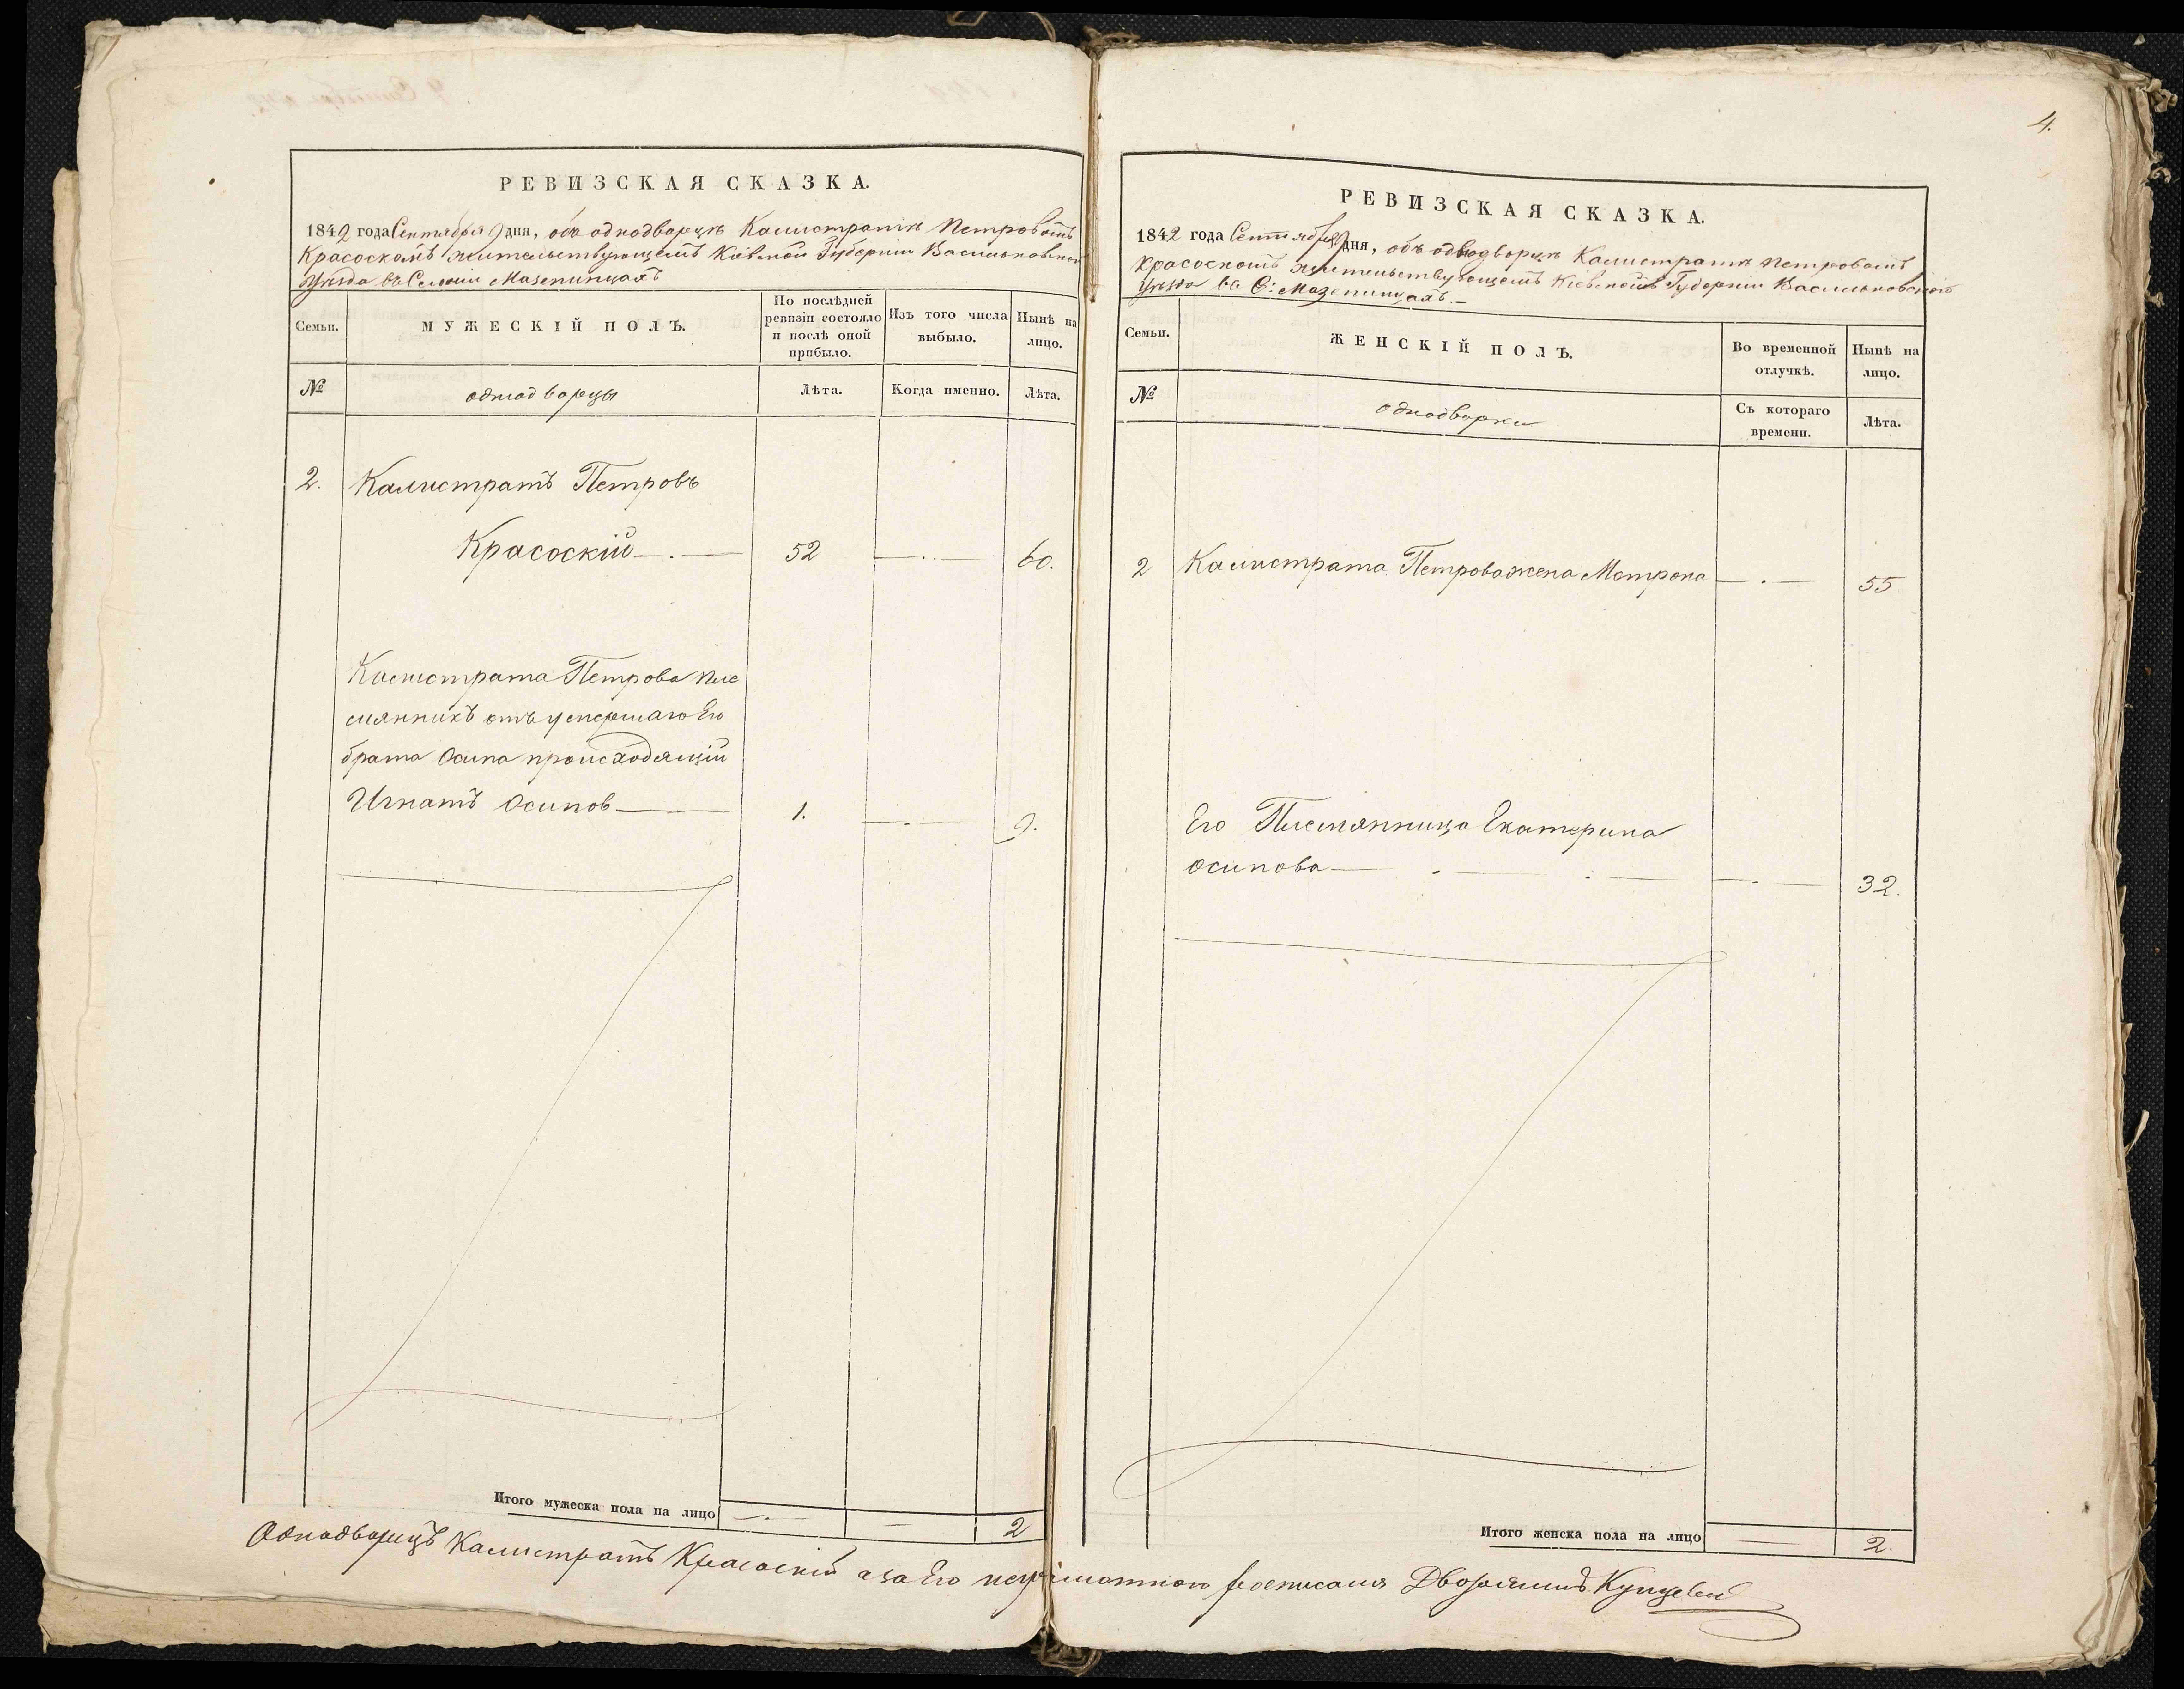 РЕВИЗСКАЯ СКАЗКА.
1842 года Сентября 9 дня, объ однодворцѣ Калистратѣ Петровомъ
Красоскомъ жительствующемъ Кіевской Губерніи Васильковского
Уѣзда въ Селеніи Мазепинцахъ
Семьи.
МУЖЕСКІЙ ПОЛЪ.
По послѣдней
ревизіи состояло
и послѣ оной
прибыло.
Изъ того числа
выбыло.
Нынѣ на
лицо.
№
однодворцы
Лѣта.
Когда именно.
Лѣта.
2. Калистратъ Петровъ
Красоскій — . — 52 — . . — 60.
Калистрата Петрова пле
мянникъ отъ умершаго Его
брата Осипа происходящій
Игнатъ Осипов — 1. — . — 9.
Итого мужеска пола на лицо — . — — 2
4.
РЕВИЗСКАЯ СКАЗКА.
1842 года Сентября 9 дня, объ однодворцѣ Калистратѣ Петровомъ
Красоскомъ жительствующемъ Кіевской Губерніи Васильковского
Уѣзда въ С: Мазепинцахъ. —
Семьи.
ЖЕНСКІЙ ПОЛЪ.
Во временной
отлучкѣ.
Нынѣ на
лицо.
№
однодворки
Съ котораго
времени.
Лѣта.
2 Калистрата Петрова жена Мотрона — . — 55
Его Племянница Екатерина
Осипова — . — . — — . — 32.
Итого женска пола на лицо — 2.
Однодворецъ Калистратъ Красоскій а за Его неграмотного росписался Дворянинъ